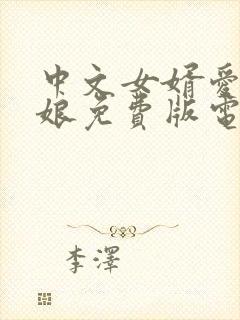 中文女婿爱
娘免費版電
李澤